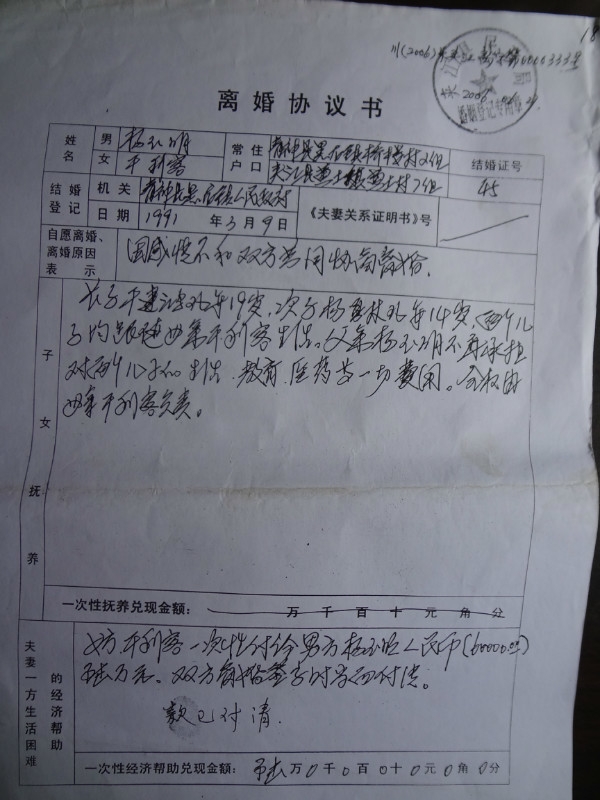 18
川(2006)
0000333号
婚姻登记专用章
离婚协议书
姓名 男 杨 常住户口 青神县黑 镇 村2组 结婚证号
女 利容 夹江县 村7组 45
结婚登记 机关 青神县黑 镇人民政府 《夫妻关系证明书》号
日期 1991年3月9日
自愿离婚、离婚原因表示 因感情不和双方共同协商离婚。
子女抚养
长子 今年19岁,次子杨 林今年14岁,两个儿
子均 母亲 利容生活。父亲杨 不再承担
对两个儿子的生活、教育、医药等一切费用。全权由
母亲 利容负责。
一次性抚养兑现金额: 万 千 百 十 元 角 分
夫妻一方生活困难的经济帮助
女方 利容一次性付给男方杨 人民币(60000.00)
陆万元。双方离婚签字时当面付清。
款已付清.
一次性经济帮助兑现金额: 陆万0千0百0十0元0角0分